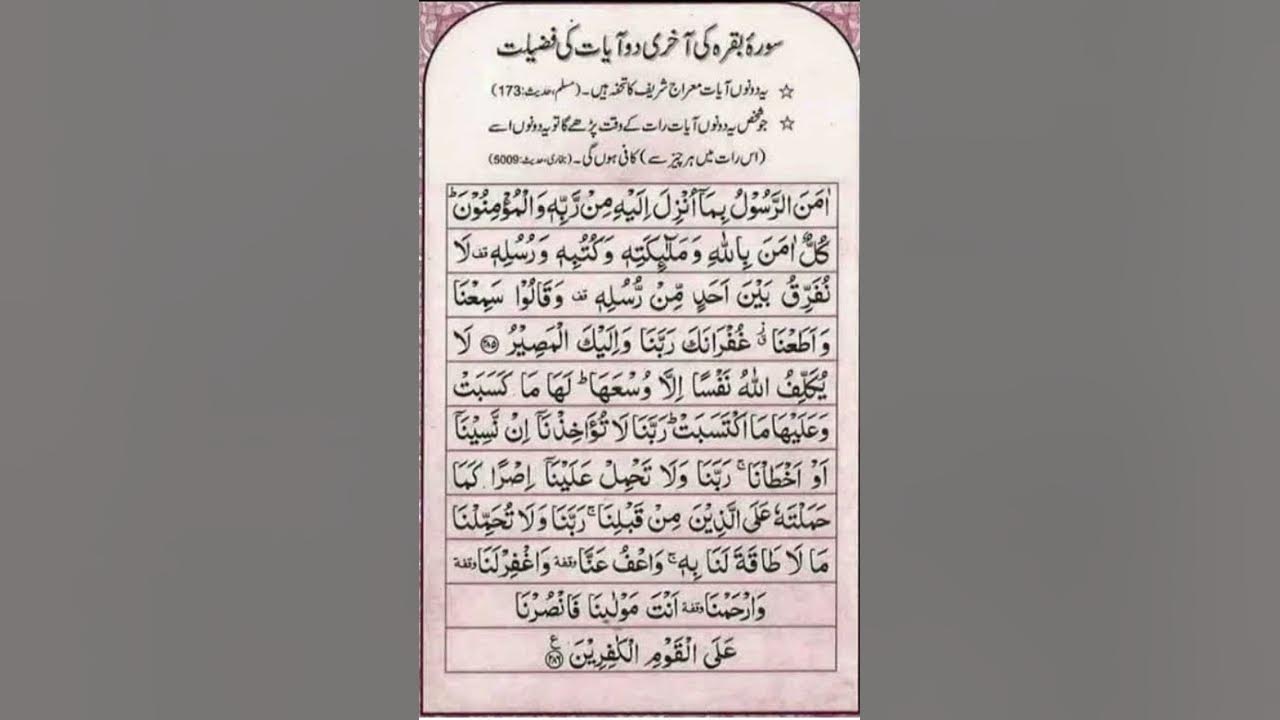 سورۂ بقرہ کی آخری دو آیات کی فضیلت
☆ یہ دونوں آیات معراج شریف کا تحفہ ہیں۔ (مسلم، حدیث:173)
☆ جو شخص یہ دونوں آیات رات کے وقت پڑھے گا تو یہ دونوں اسے
(اس رات میں ہر چیز سے) کافی ہوں گی۔ (بخاری، حدیث:5009)
اٰمَنَ الرَّسُوْلُ بِمَاۤ اُنْزِلَ اِلَیْهِ مِنْ رَّبِّهٖ وَ الْمُؤْمِنُوْنَ ؕ
كُلٌّ اٰمَنَ بِاللّٰهِ وَ مَلٰٓىِٕكَتِهٖ وَ كُتُبِهٖ وَ رُسُلِهٖ قف لَا
نُفَرِّقُ بَیْنَ اَحَدٍ مِّنْ رُّسُلِهٖ قف وَ قَالُوْا سَمِعْنَا
وَ اَطَعْنَا ق ز غُفْرَانَكَ رَبَّنَا وَ اِلَیْكَ الْمَصِیْرُ ﴿۲۸۵﴾ لَا
یُكَلِّفُ اللّٰهُ نَفْسًا اِلَّا وُسْعَهَا ؕ لَهَا مَا كَسَبَتْ
وَ عَلَیْهَا مَا اكْتَسَبَتْ ؕ رَبَّنَا لَا تُؤَاخِذْنَاۤ اِنْ نَّسِیْنَاۤ
اَوْ اَخْطَاْنَا ۚ رَبَّنَا وَ لَا تَحْمِلْ عَلَیْنَاۤ اِصْرًا كَمَا
حَمَلْتَهٗ عَلَی الَّذِیْنَ مِنْ قَبْلِنَا ۚ رَبَّنَا وَ لَا تُحَمِّلْنَا
مَا لَا طَاقَةَ لَنَا بِهٖ ۚ وَ اعْفُ عَنَّا وقفة وَ اغْفِرْ لَنَا وقفة
وَ ارْحَمْنَا وقفة اَنْتَ مَوْلٰىنَا فَانْصُرْنَا
عَلَی الْقَوْمِ الْكٰفِرِیْنَ ﴿۲۸۶﴾ ع